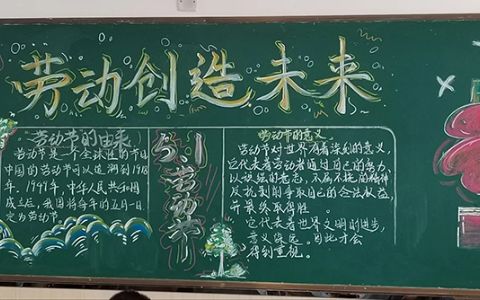 劳动创造未来
劳动节的由来
劳动节是一个全球性的节日
中国的劳动节可以追溯到1918
年。1949年,中华人民共和国
成立后,我国将每年的五月一日
定为劳动节。
5.1
劳动节
劳动节的意义
劳动节对世界有着深刻的意义,
它代表着劳动者通过自己的努力,
以顽强的意志,不屈不挠的精神
反抗到用争取自己的合法权益,
并最终取得胜。
它代表着世界文明的进步,
意义深远。因此才会
得到重视。